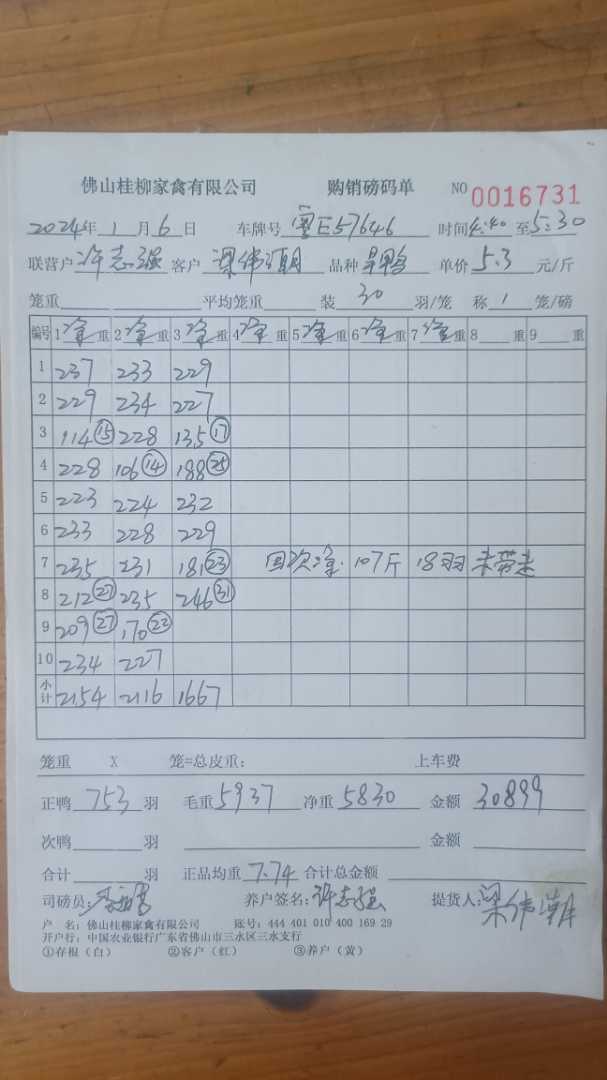 佛山桂柳家禽有限公司 购销磅码单 NO 0016731
2024年 1 月 6 日 车牌号 粤E57646 时间 4:40 至 5:30
联营户 许志强 客户 梁伟潮 品种 旱鸭 单价 5.3 元/斤
笼重 平均笼重 装 30 羽/笼 称 1 笼/磅
编号 1 净 重 2 净 重 3 净 重 4 净 重 5 净 重 6 净 重 7 净 重 8 重 9 重
1 237 233 229
2 229 234 227
3 114 ⑮ 228 135 ⑰
4 228 106 ⑭ 188 ㉕
5 223 224 232
6 233 228 229
7 235 231 181 ㉓ 回次净 107斤 18羽 未带走
8 212 ㉗ 235 246 ㉛
9 209 ㉗ 170 ㉒
10 234 227
小计 2154 2116 1667
笼重 X 笼=总皮重: 上车费
正鸭 753 羽 毛重 5937 净重 5830 金额 30899
次鸭 羽 金额
合计 羽 正品均重 7.74 合计总金额
司磅员: 养户签名: 许志强 提货人: 梁伟潮
户 名: 佛山桂柳家禽有限公司 账号: 444 401 010 400 169 29
开户行: 中国农业银行广东省佛山市三水区三水支行
①存根(白) ②客户(红) ③养户(黄)